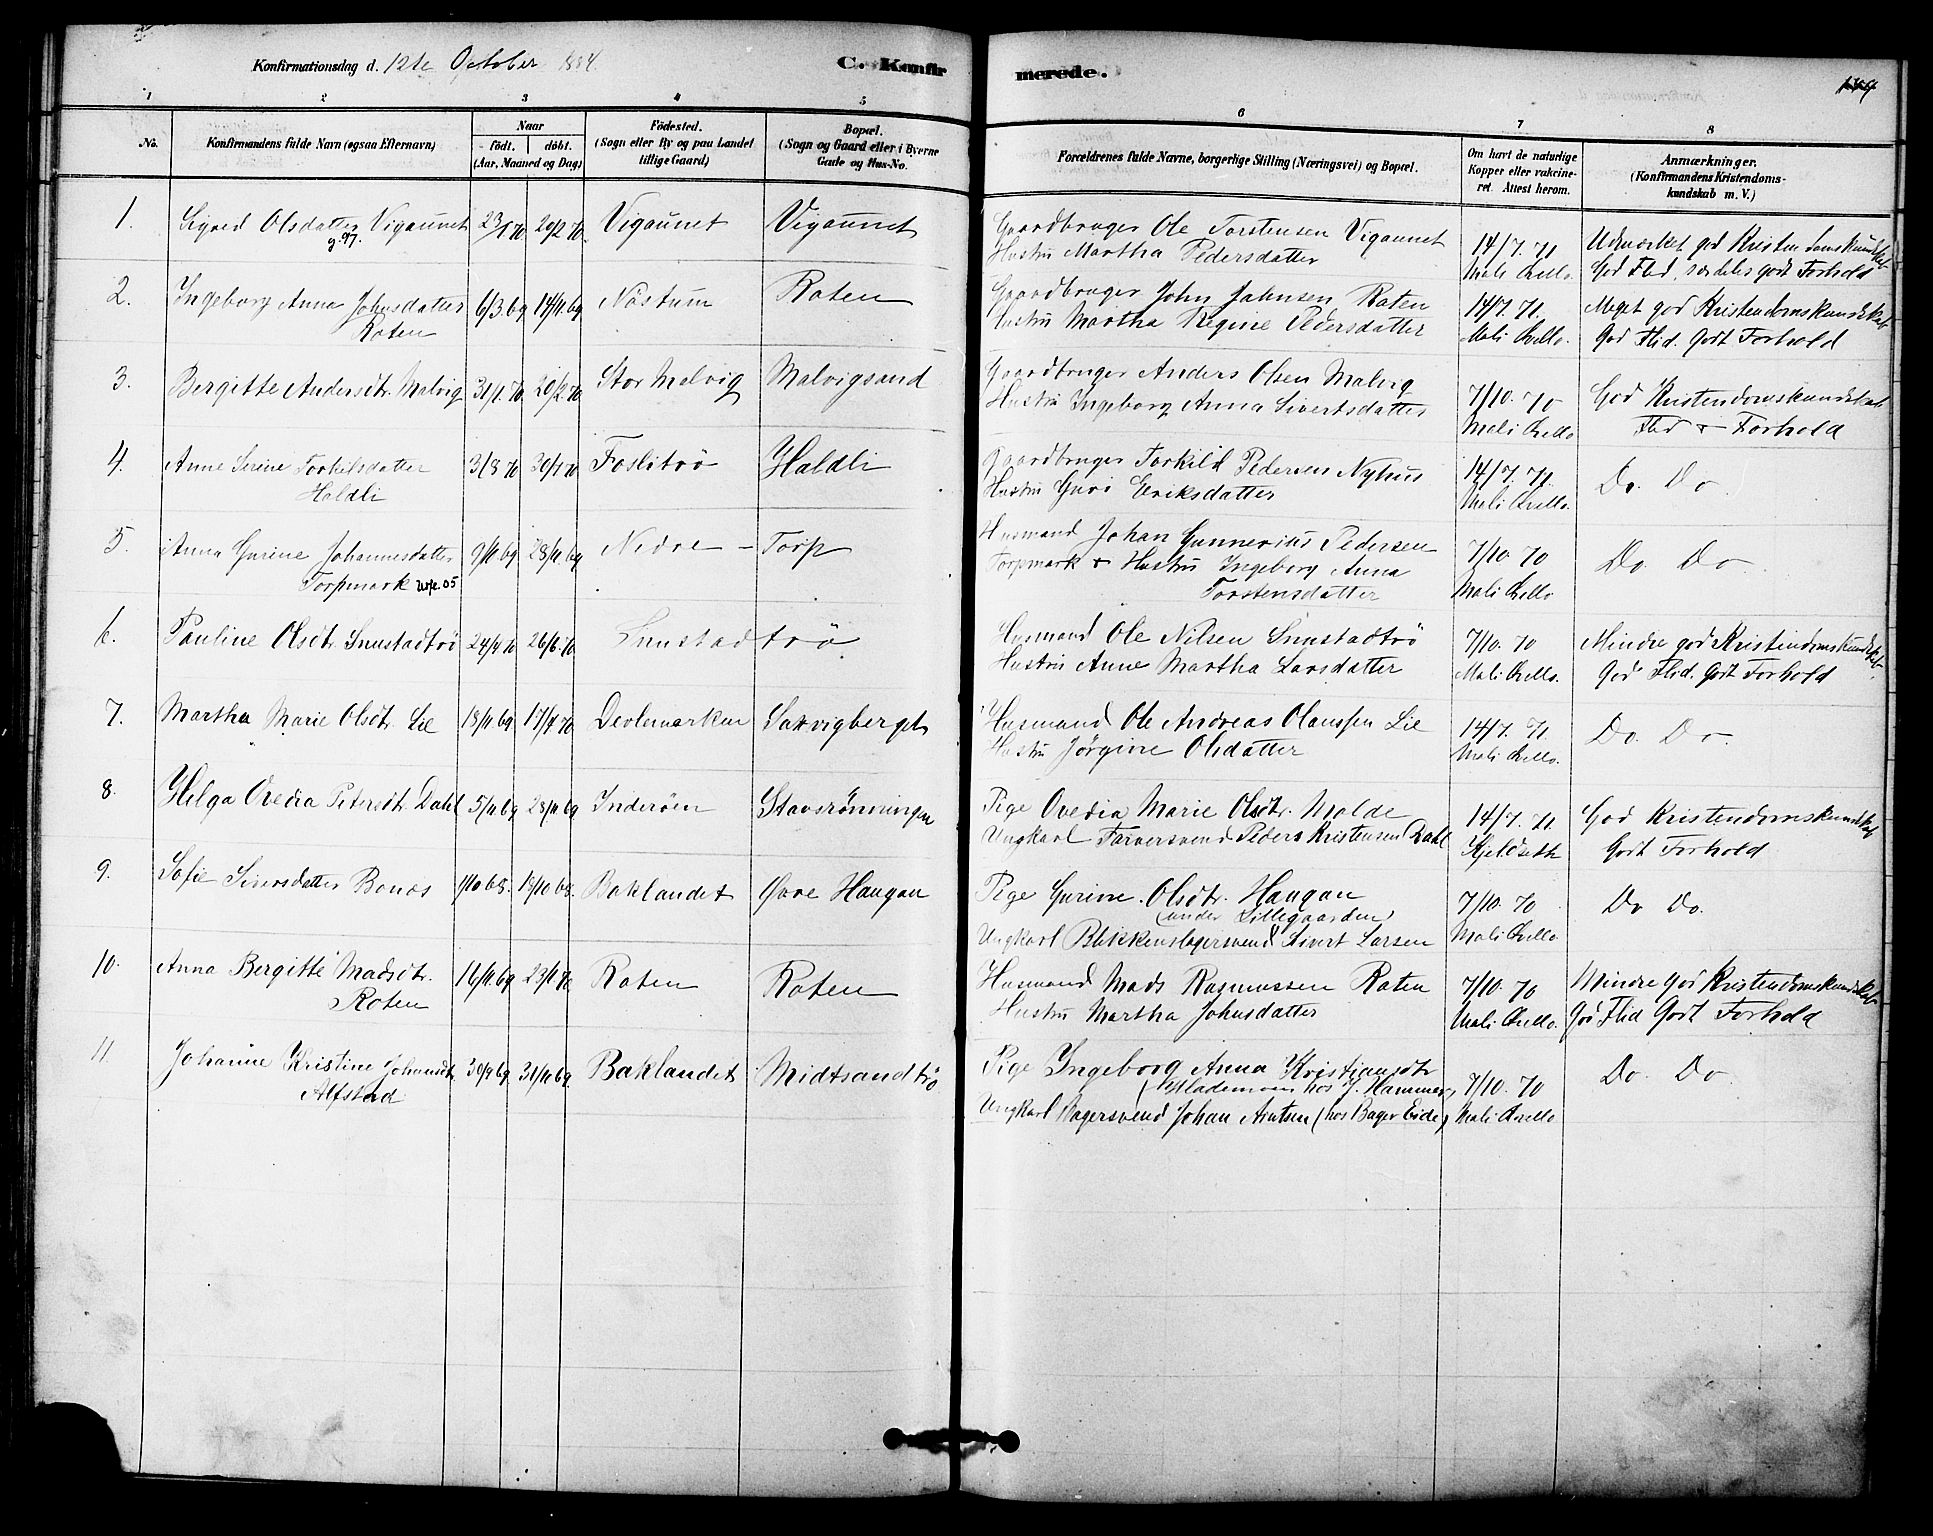 Konfirmationsdag d. 12te October 1884.
C. Konfirmerede.
1 2 3 4 5 6 7 8
No.
Konfirmandens fulde Navn (ogsaa Efternavn)
Naar
født. døbt.
(Aar, Maaned og Dag)
Fødested.
(Sogn eller By og paa Landet
tillige Gaard)
Bopæl.
(Sogn og Gaard eller i Byerne
Gade og Hus-No.
Forældrenes fulde Navne, borgerlige Stilling (Næringsvei) og Bopæl.
Om havt de naturlige
Kopper eller vakcine-
ret. Attest herom.
Anmærkninger.
(Konfirmandens Kristendoms-
kundskab m. V.)
1. Sigrid Olsdatter Vigaunet 23/1 70 20/2 70. Vigaunet Vigaunet Gaardbruger Ole Torstensen Vigaunet 14/7. 71 Udmærket god Kristendomskundskab
g. 97. Hustru Martha Pedersdatter Mali Qvello. God Flid, særdeles godt Forhold
2. Ingeborg Anna Johnsdatter 6/3 69 14/11 69 Nåstum Roten Gaardbruger John Johnsen Roten 14/7. 71. Meget god Kristendomskundskab
Roten Hustru Martha Regine Pedersdatter Mali Qvello. God Flid. Godt Forhold
3. Bergitte Andersdtr. Malvig 31/1. 70 20/2. 70 Stor Malvig Malvigsand Gaardbruger Anders Olsen Malvig 7/10. 70 God Kristendomskundskab
Hustru Ingeborg Anna Sivertsdatter Mali Qvello Flid + Forhold
4. Anne Serine Torkilsdatter 3/8 70 30/ 70 Foslitrø Haldli Gaardbruger Torkild Pedersen Nyhus 14/7. 71. Do. Do.
Haldli Hustru Guri Eriksdatter Mali Qvello.
5. Anna Gurine Johannesdatter 9/11 69 28/11 69 Nedre - Torp Husmand Johan Gunnerius Pedersen 7/10 70 Do. Do
Torpmark 05 Torpmark + Hustru Ingeborg Anna Mali Qvello
Torstensdatter
6. Pauline Olsdtr. Smustadtrø 24/4 70 26/6 70 Smustadtrø Husmand Ole Nilsen Smustadtrø 7/10. 70 Mindre god Kristendomskundskab
Hustru Anne Martha Larsdatter Mali Qvello. God Flid. Godt Forhold
7. Martha Marie Olsdtr. Lie 18/11 69 17/4 70 Devlemarken Saxvigberget Husmand Ole Andreas Olaussen Lie 14/7. 71 Do. Do.
Hustru Jørgine Olsdatter Mali Qvello.
8. Helga Ovedia Petersdtr. Dahl 5/11 69 28/11 69 Inderøen Stavsrønningen Pige Ovedia Marie Olsdtr. Molde 14/7. 71. God Kristendomskundskab
Ungkarl Farversvend Peders Kristensen Dahl Kjeldseth Godt Forhold
9. Sofie Siversdatter Bonæs 1/10 68. 18/10 68. Baklandet Øvre Haugan Pige Gurine Olsdtr. Haugan 7/10. 70 Do Do.
(under Lillegaarden)
Ungkarl Blikkenslagersvend Sivert Larsen Mali Qvello
10. Anna Bergitte Madsdtr. 16/11. 69 23/1 70 Roten Roten Husmand Mads Rasmussen Roten 7/10. 70 Mindre god Kristendomskundskab
Roten Hustru Martha Johnsdatter Mali Qvello. God Flid Godt Forhold
11. Johanne Kristine Johansdtr. 30/9 69 31/11 69 Baklandet Midtsandtrø Pige Ingeborg Anna Kristiansdtr 7/10. 70 Do. Do
Alfstad (Hlademoen hos J. Hammer)
Ungkarl Bagersvend Johan Arntsen (hos Bager Eide) Mali Qvello